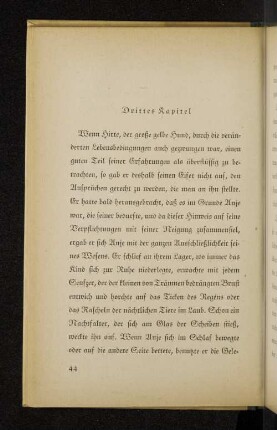 Drittes Kapitel
Wenn Hirte, der große gelbe Hund, durch die verän-
derten Lebensbedingungen auch gezwungen war, einen
guten Teil seiner Erfahrungen als überflüssig zu be-
trachten, so gab er deshalb seinen Eifer nicht auf, den
Ansprüchen gerecht zu werden, die man an ihn stellte.
Er hatte bald herausgebracht, daß es im Grunde Anje
war, die seiner bedurfte, und da dieser Hinweis auf seine
Verpflichtungen mit seiner Neigung zusammenfiel,
ergab er sich Anje mit der ganzen Ausschließlichkeit sei-
nes Wesens. Er schlief an ihrem Lager, wo immer das
Kind sich zur Ruhe niederlegte, erwachte mit jedem
Seufzer, der der kleinen von Träumen bedrängten Brust
entwich und horchte auf das Ticken des Regens oder
das Rascheln der nächtlichen Tiere im Laub. Schon ein
Nachtfalter, der sich am Glas der Scheiben stieß,
weckte ihn auf. Wenn Anje sich im Schlaf bewegte
oder auf die andere Seite bettete, benutzte er die Gele-
44